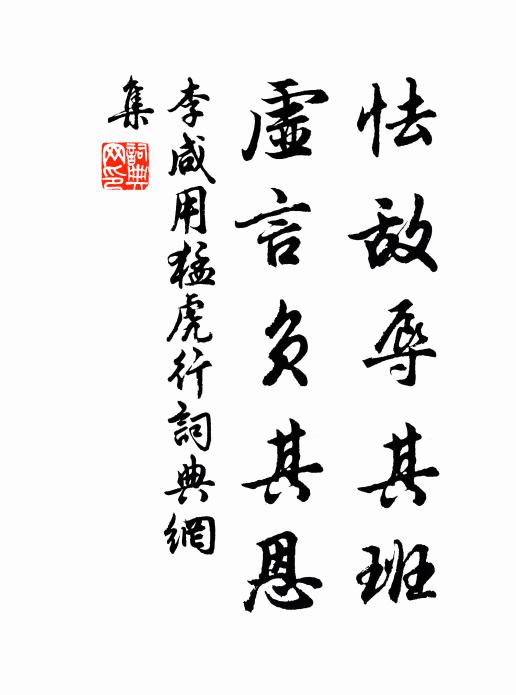 怯敵辱其班
虛言負其恩
李咸用猛虎行詞典網
集
詞典
网印